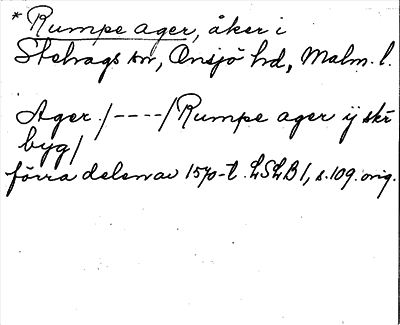 * Rumpe ager, åker i
Stehags sn, Onsjö hd, Malm. l.
Ager /----/ Rumpe ager ÿ skr
byg/
förra delen av 1570-t. LSLB 1, s. 109. orig.